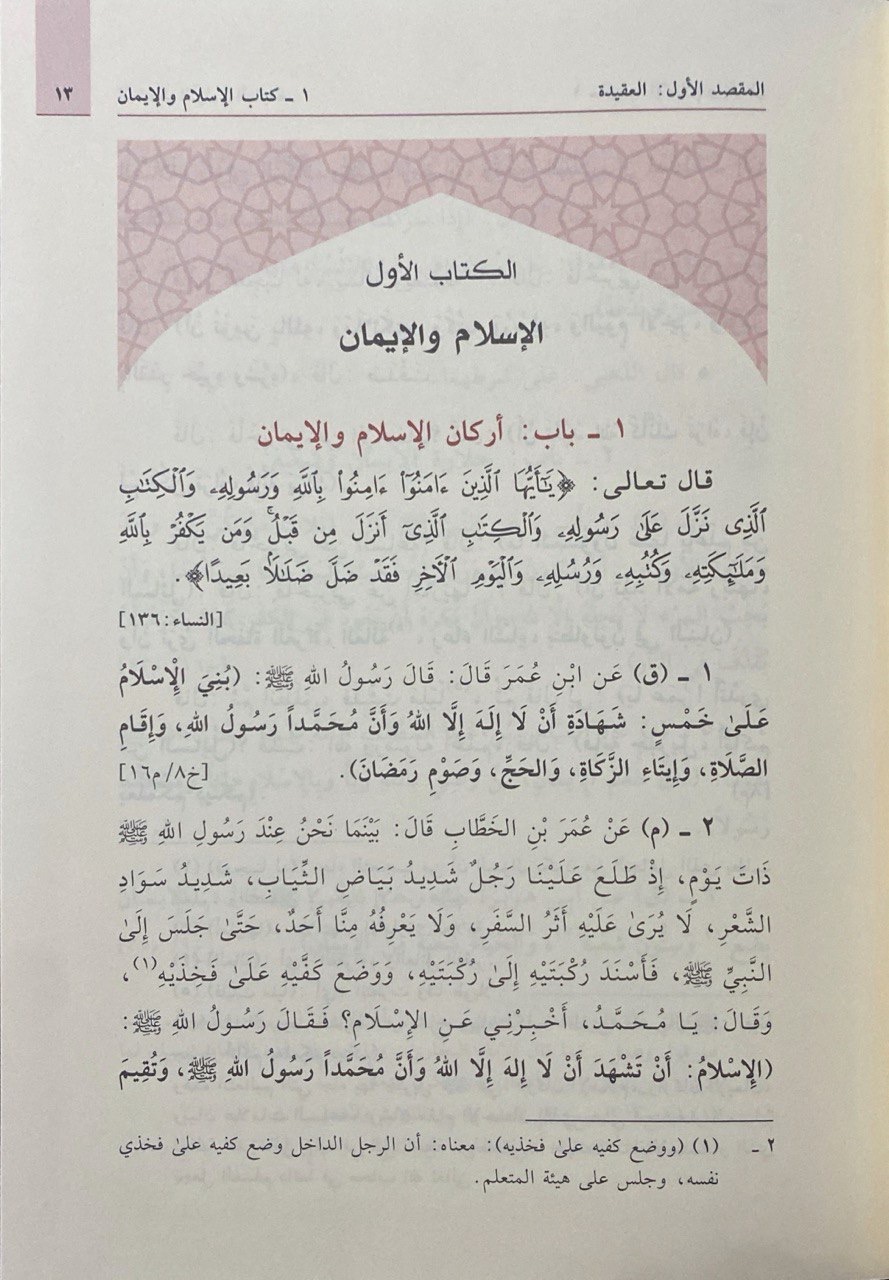 المقصد الأول: العقيدة
١ ـ كتاب الإسلام والإيمان
١٣
الكتاب الأول
الإسلام والإيمان
١ ـ باب: أركان الإسلام والإيمان
قال تعالى: ﴿يَٰٓأَيُّهَا ٱلَّذِينَ ءَامَنُوٓاْ ءَامِنُواْ بِٱللَّهِ وَرَسُولِهِۦ وَٱلۡكِتَٰبِ
ٱلَّذِي نَزَّلَ عَلَىٰ رَسُولِهِۦ وَٱلۡكِتَٰبِ ٱلَّذِيٓ أَنزَلَ مِن قَبۡلُۚ وَمَن يَكۡفُرۡ بِٱللَّهِ
وَمَلَٰٓئِكَتِهِۦ وَكُتُبِهِۦ وَرُسُلِهِۦ وَٱلۡيَوۡمِ ٱلۡأٓخِرِ فَقَدۡ ضَلَّ ضَلَٰلَۢا بَعِيدًا﴾.
[النساء:١٣٦]
١ ـ (ق) عَن ابْنِ عُمَرَ قَالَ: قَالَ رَسُولُ اللهِ ﷺ: (بُنِيَ الْإِسْلَامُ
عَلَىٰ خَمْسٍ: شَهَادَةِ أَنْ لَا إِلَهَ إِلَّا اللهُ وَأَنَّ مُحَمَّداً رَسُولُ اللهِ، وَإِقَامِ
الصَّلَاةِ، وَإِيتَاءِ الزَّكَاةِ، وَالحَجِّ، وَصَوْمِ رَمَضَانَ). [خ٨/ م١٦]
٢ ـ (م) عَنْ عُمَرَ بْنِ الخَطَّابِ قَالَ: بَيْنَمَا نَحْنُ عِنْدَ رَسُولِ اللهِ ﷺ
ذَاتَ يَوْمٍ، إِذْ طَلَعَ عَلَيْنَا رَجُلٌ شَدِيدُ بَيَاضِ الثِّيَابِ، شَدِيدُ سَوَادِ
الشَّعْرِ، لَا يُرَىٰ عَلَيْهِ أَثَرُ السَّفَرِ، وَلَا يَعْرِفُهُ مِنَّا أَحَدٌ، حَتَّىٰ جَلَسَ إِلَىٰ
النَّبِيِّ ﷺ، فَأَسْنَدَ رُكْبَتَيْهِ إِلَىٰ رُكْبَتَيْهِ، وَوَضَعَ كَفَّيْهِ عَلَىٰ فَخِذَيْهِ(١)،
وَقَالَ: يَا مُحَمَّدُ، أَخْبِرْنِي عَنِ الإِسْلَامِ؟ فَقَالَ رَسُولُ اللهِ ﷺ:
(الإِسْلَامُ: أَنْ تَشْهَدَ أَنْ لَا إِلهَ إِلَّا اللهُ وَأَنَّ مُحَمَّداً رَسُولُ اللهِ ﷺ، وَتُقِيمَ
٢ ـ (١) (ووضع كفيه علىٰ فخذيه): معناه: أن الرجل الداخل وضع كفيه علىٰ فخذي
نفسه، وجلس على هيئة المتعلم.